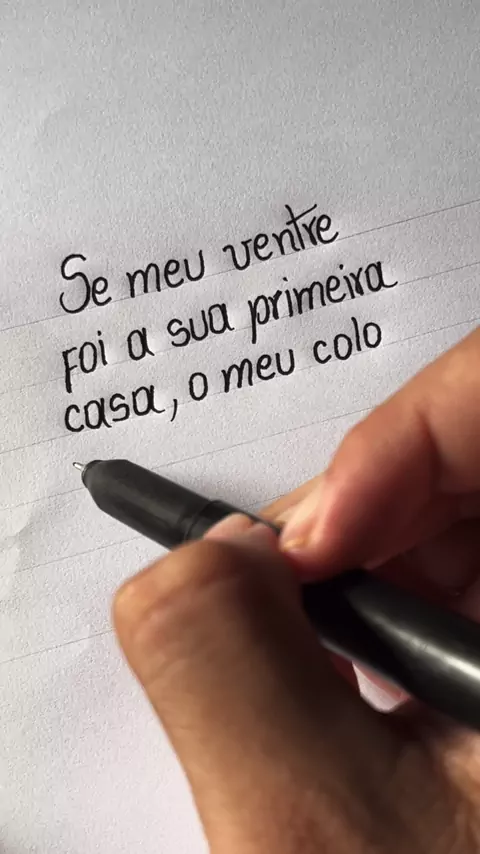 Se meu ventre
Foi a sua primeira
casa, o meu colo